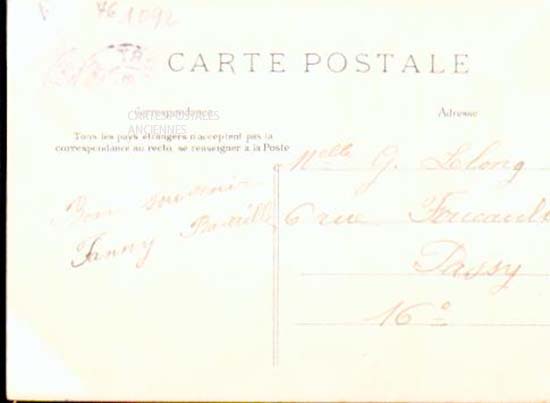 76 1092
CARTE POSTALE
Correspondance
CARTES POSTALES
ANCIENNES
Adresse
Tous les pays étrangers n'acceptent pas la
correspondance au recto, se renseigner à la Poste
Bon souvenir
Fanny
Melle G. Lelong
6 rue Foucault
Passy
16e